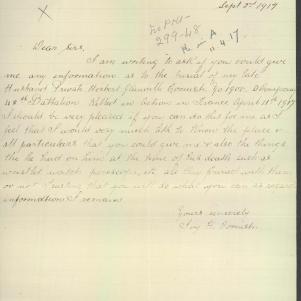 Sept 3rd 1917
299-48
Dear Sir,
I am writing to ask if you could give
me any information as to the burial of my late
Husband Herbert No 1900. D Company
48th Battalion Killed in Action in France April 11th 1917
I should be very pleased if you can do this for me as I
feel that I would very much like to know the place &
all particulars that you could give me & also the things
the he had on him at the time of his death such as
wristlet watch etc are they buried with them
or not. Trusting that you will do what you can as regards
information I remain
Yours sincerely